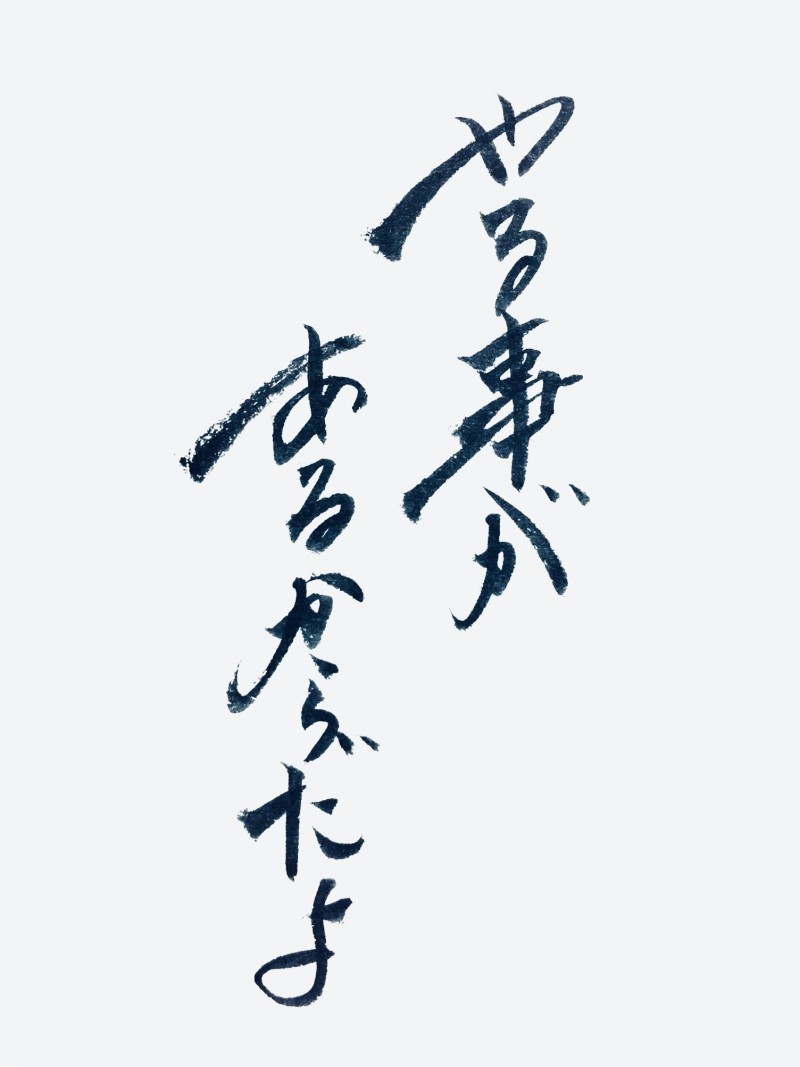 やる事が
あるからだよ